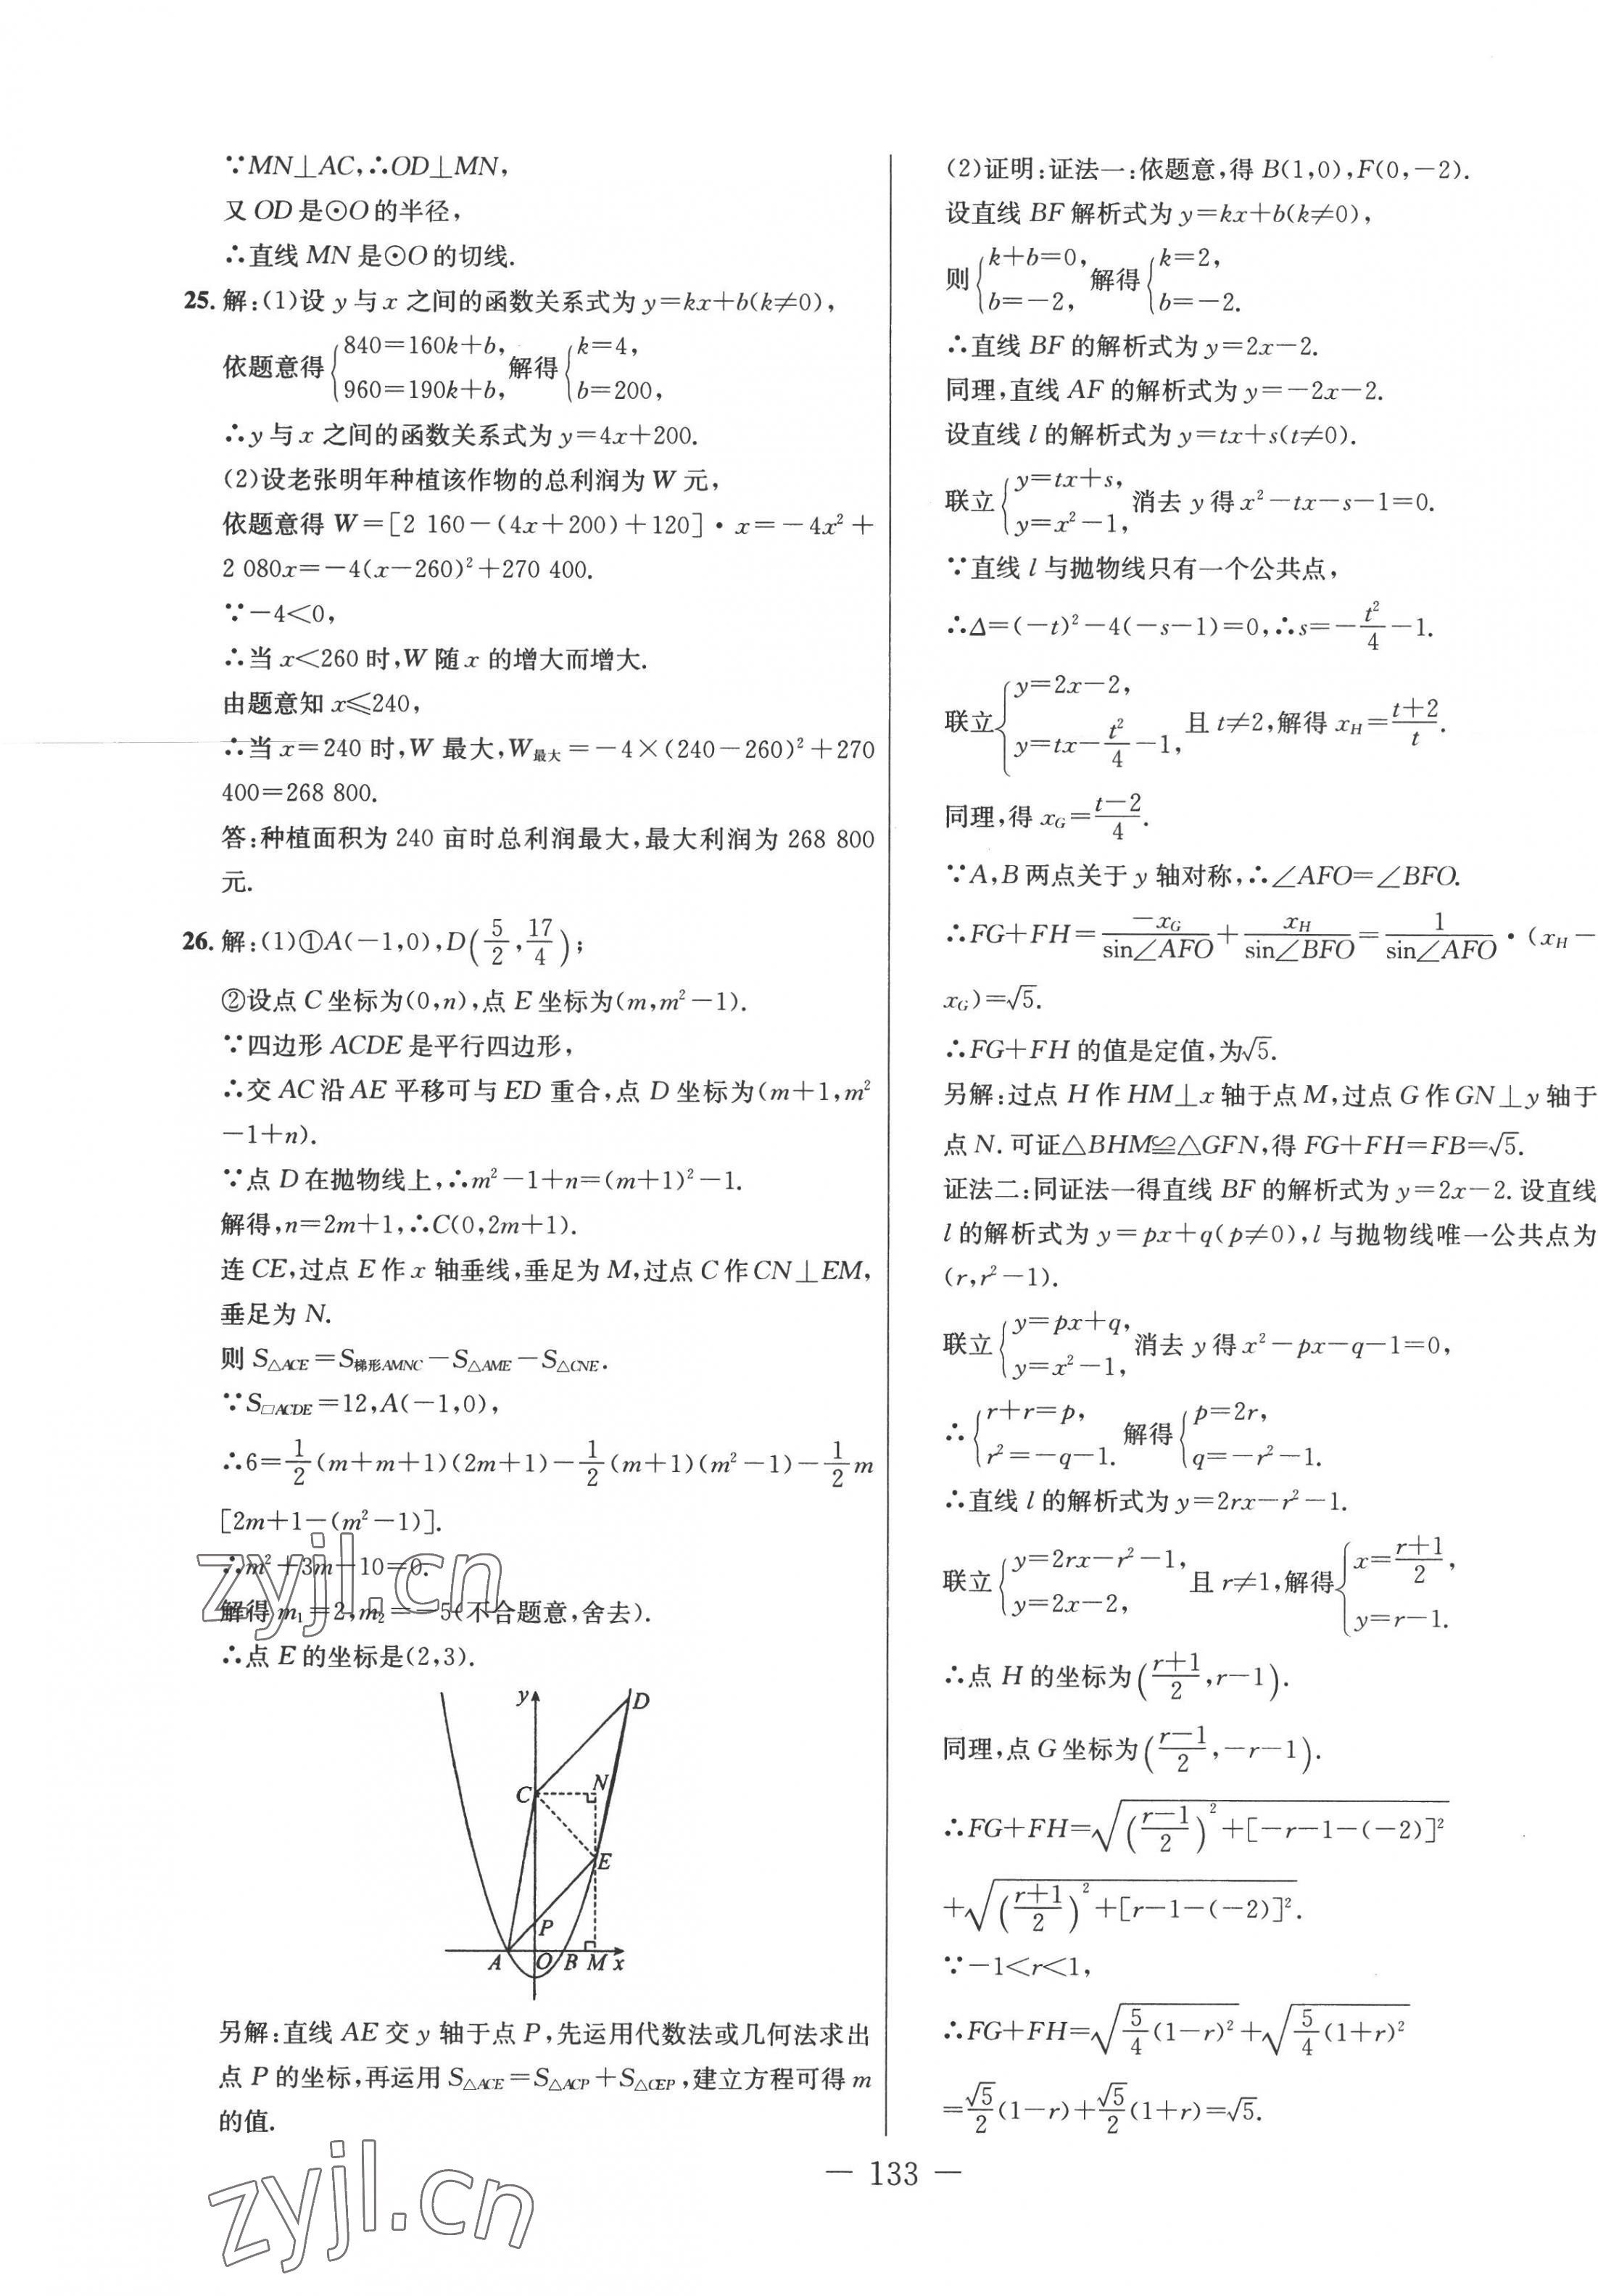 ∵MN⊥AC,∴OD⊥MN,
又 OD 是⊙O 的半径,
∴直线 MN 是⊙O 的切线.
25. 解:(1)设 y 与 x 之间的函数关系式为 y=kx+b(k≠0),
依题意得{840=160k+b, 960=190k+b, 解得{k=4, b=200,
∴y 与 x 之间的函数关系式为 y=4x+200.
(2)设老张明年种植该作物的总利润为 W 元,
依题意得 W=[2 160-(4x+200)+120]·x=-4x²+
2 080x=-4(x-260)²+270 400.
∵-4<0,
∴当 x<260 时,W 随 x 的增大而增大.
由题意知 x≤240,
∴当 x=240 时,W 最大,W最大=-4×(240-260)²+270
400=268 800.
答:种植面积为 240 亩时总利润最大,最大利润为 268 800
元.
26. 解:(1)①A(-1,0),D(5/2,17/4);
②设点 C 坐标为(0,n),点 E 坐标为(m,m²-1).
∵四边形 ACDE 是平行四边形,
∴交 AC 沿 AE 平移可与 ED 重合,点 D 坐标为(m+1,m²
-1+n).
∵点 D 在抛物线上,∴m²-1+n=(m+1)²-1.
解得,n=2m+1,∴C(0,2m+1).
连 CE,过点 E 作 x 轴垂线,垂足为 M,过点 C 作 CN⊥EM,
垂足为 N.
则 S△ACE=S梯形AMNC-S△AME-S△CNE.
∵S□ACDE=12,A(-1,0),
∴6=1/2(m+m+1)(2m+1)-1/2(m+1)(m²-1)-1/2m
[2m+1-(m²-1)].
∴m²+3m-10=0.
解得 m₁=2,m₂=-5(不合题意,舍去).
∴点 E 的坐标是(2,3).
y
D
C
N
E
P
A
O
B
M
x
另解:直线 AE 交 y 轴于点 P,先运用代数法或几何法求出
点 P 的坐标,再运用 S△ACE=S△ACP+S△CEP,建立方程可得 m
的值.
(2)证明:证法一:依题意,得 B(1,0),F(0,-2).
设直线 BF 解析式为 y=kx+b(k≠0),
则{k+b=0, b=-2, 解得{k=2, b=-2.
∴直线 BF 的解析式为 y=2x-2.
同理,直线 AF 的解析式为 y=-2x-2.
设直线 l 的解析式为 y=tx+s(t≠0).
联立{y=tx+s, y=x²-1, 消去 y 得 x²-tx-s-1=0.
∵直线 l 与抛物线只有一个公共点,
∴Δ=(-t)²-4(-s-1)=0,∴s=-t²/4-1.
联立{y=2x-2, y=tx-t²/4-1, 且 t≠2,解得 xH=(t+2)/t.
同理,得 xG=(t-2)/4.
∵A,B 两点关于 y 轴对称,∴∠AFO=∠BFO.
∴FG+FH=-xG/sin∠AFO+xH/sin∠BFO=1/sin∠AFO·(xH-
xG)=√5.
∴FG+FH 的值是定值,为√5.
另解:过点 H 作 HM⊥x 轴于点 M,过点 G 作 GN⊥y 轴于
点 N. 可证△BHM≌△GFN,得 FG+FH=FB=√5.
证法二:同证法一得直线 BF 的解析式为 y=2x-2. 设直线
l 的解析式为 y=px+q(p≠0),l 与抛物线唯一公共点为
(r,r²-1).
联立{y=px+q, y=x²-1, 消去 y 得 x²-px-q-1=0,
∴{r+r=p, r²=-q-1. 解得{p=2r, q=-r²-1.
∴直线 l 的解析式为 y=2rx-r²-1.
联立{y=2rx-r²-1, y=2x-2, 且 r≠1,解得{x=(r+1)/2, y=r-1.
∴点 H 的坐标为((r+1)/2,r-1).
同理,点 G 坐标为((r-1)/2,-r-1).
∴FG+FH=√(((r-1)/2)²+[-r-1-(-2)]²)
+√(((r+1)/2)²+[r-1-(-2)]²).
∵-1<r<1,
∴FG+FH=√(5/4(1-r)²)+√(5/4(1+r)²)
=√5/2(1-r)+√5/2(1+r)=√5.
— 133 —
zyjl.cn
zyjl.cn